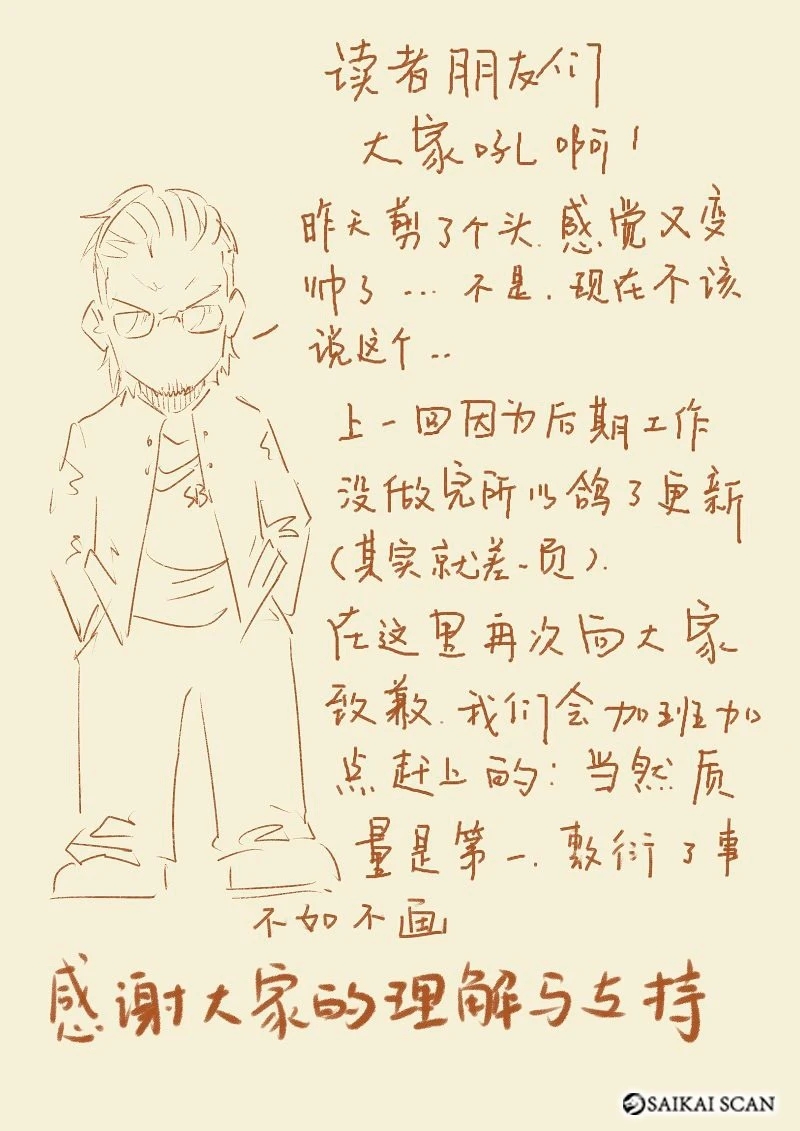 读者朋友们
大家吼啊！
昨天剪了个头.感觉又变
帅了...不是.现在不该
说这个..
上一回因为后期工作
没做完所以鸽了更新
(其实就差一页).
在这里再次向大家
致歉.我们会加班加
点赶上的;当然质
量是第一.敷衍了事
不如不画
感谢大家的理解与支持
SB!
SAIKAI SCAN